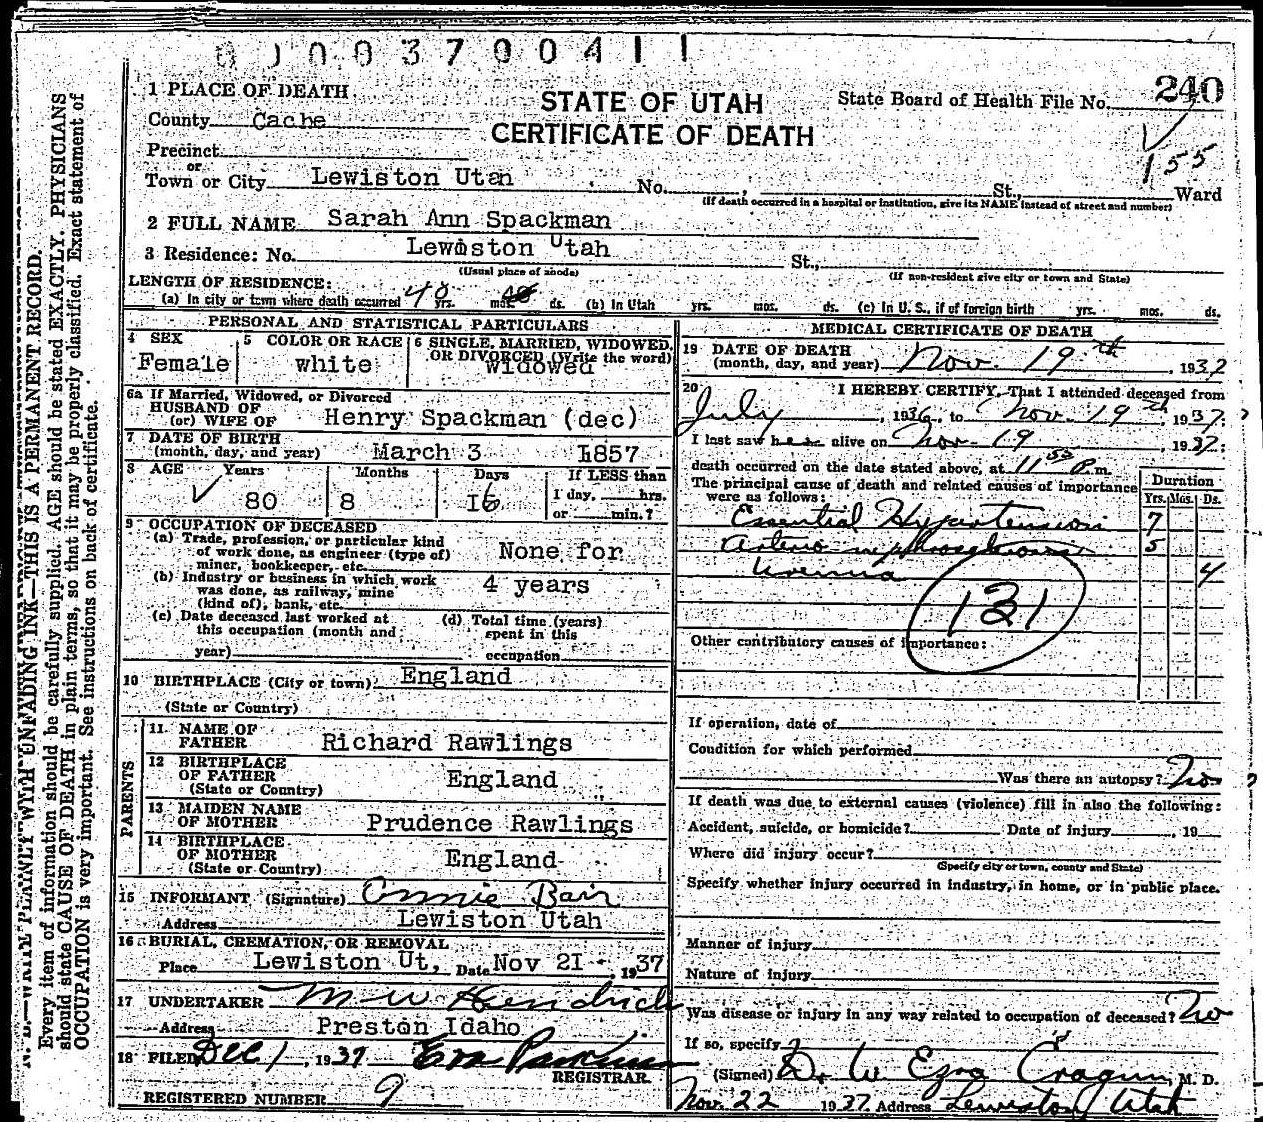 0 0 0 3 7 0 0 4 1 1
1 PLACE OF DEATH
STATE OF UTAH
CERTIFICATE OF DEATH
State Board of Health File No. 240
County Cache
155
Precinct
or
Town or City Lewiston Utah No. , St., Ward
(If death occurred in a hospital or institution, give its NAME instead of street and number)
2 FULL NAME Sarah Ann Spackman
3 Residence: No. Lewiston Utah St.,
(Usual place of abode) (If non-resident give city or town and State)
LENGTH OF RESIDENCE:
(a) In city or town where death occurred 40 yrs. mos. ds. (b) In Utah yrs. mos. ds. (c) In U. S., if of foreign birth yrs. mos. ds.
PERSONAL AND STATISTICAL PARTICULARS
4 SEX Female
5 COLOR OR RACE white
6 SINGLE, MARRIED, WIDOWED,
OR DIVORCED (Write the word)
widowed
6a If Married, Widowed, or Divorced
HUSBAND OF
(or) WIFE OF Henry Spackman (dec)
7 DATE OF BIRTH
(month, day, and year) March 3 1857
8 AGE Years Months Days If LESS than
80 8 16 1 day, hrs.
or min.?
9 OCCUPATION OF DECEASED
(a) Trade, profession, or particular kind
of work done, as engineer (type of)
miner, bookkeeper, etc. None for
(b) Industry or business in which work
was done, as railway, mine
(kind of), bank, etc. 4 years
(c) Date deceased last worked at
this occupation (month and
year)
(d) Total time (years)
spent in this
occupation
10 BIRTHPLACE (City or town) England
(State or Country)
PARENTS
11 NAME OF
FATHER Richard Rawlings
12 BIRTHPLACE
OF FATHER England
(State or Country)
13 MAIDEN NAME
OF MOTHER Prudence Rawlings
14 BIRTHPLACE
OF MOTHER England
(State or Country)
15 INFORMANT (Signature) Annie Bair
Address Lewiston Utah
16 BURIAL, CREMATION, OR REMOVAL
Place Lewiston Ut, Date Nov 21 , 1937
17 UNDERTAKER M W Hendricks
Address Preston Idaho
18 FILED Dec 1, 1937 Eva Parkinson
REGISTRAR.
REGISTERED NUMBER 9
MEDICAL CERTIFICATE OF DEATH
19 DATE OF DEATH
(month, day, and year) Nov. 19th, 1937
20 I HEREBY CERTIFY, That I attended deceased from
July, 1936, to Nov. 19th, 1937:
I last saw her alive on Nov. 19, 1937:
death occurred on the date stated above, at 11 55 P.m.
The principal cause of death and related causes of importance
were as follows:
Duration
Yrs. Mos. Ds.
Essential Hypertension 7
Arterio nephrosclerosis 5
Uremia 4
131
Other contributory causes of importance:
If operation, date of
Condition for which performed
Was there an autopsy? No
If death was due to external causes (violence) fill in also the following:
Accident, suicide, or homicide? Date of injury , 19
Where did injury occur?
(Specify city or town, county and State)
Specify whether injury occurred in industry, in home, or in public place.
Manner of injury
Nature of injury
Was disease or injury in any way related to occupation of deceased? No
If so, specify
(Signed) Dr W Ezra Cragun, M. D.
Nov. 22 1937 Address Lewiston, Utah
N. B.—WRITE PLAINLY WITH UNFADING INK—THIS IS A PERMANENT RECORD.
Every item of information should be carefully supplied. AGE should be stated EXACTLY. PHYSICIANS
should state CAUSE OF DEATH in plain terms, so that it may be properly classified. Exact statement of
OCCUPATION is very important. See instructions on back of certificate.